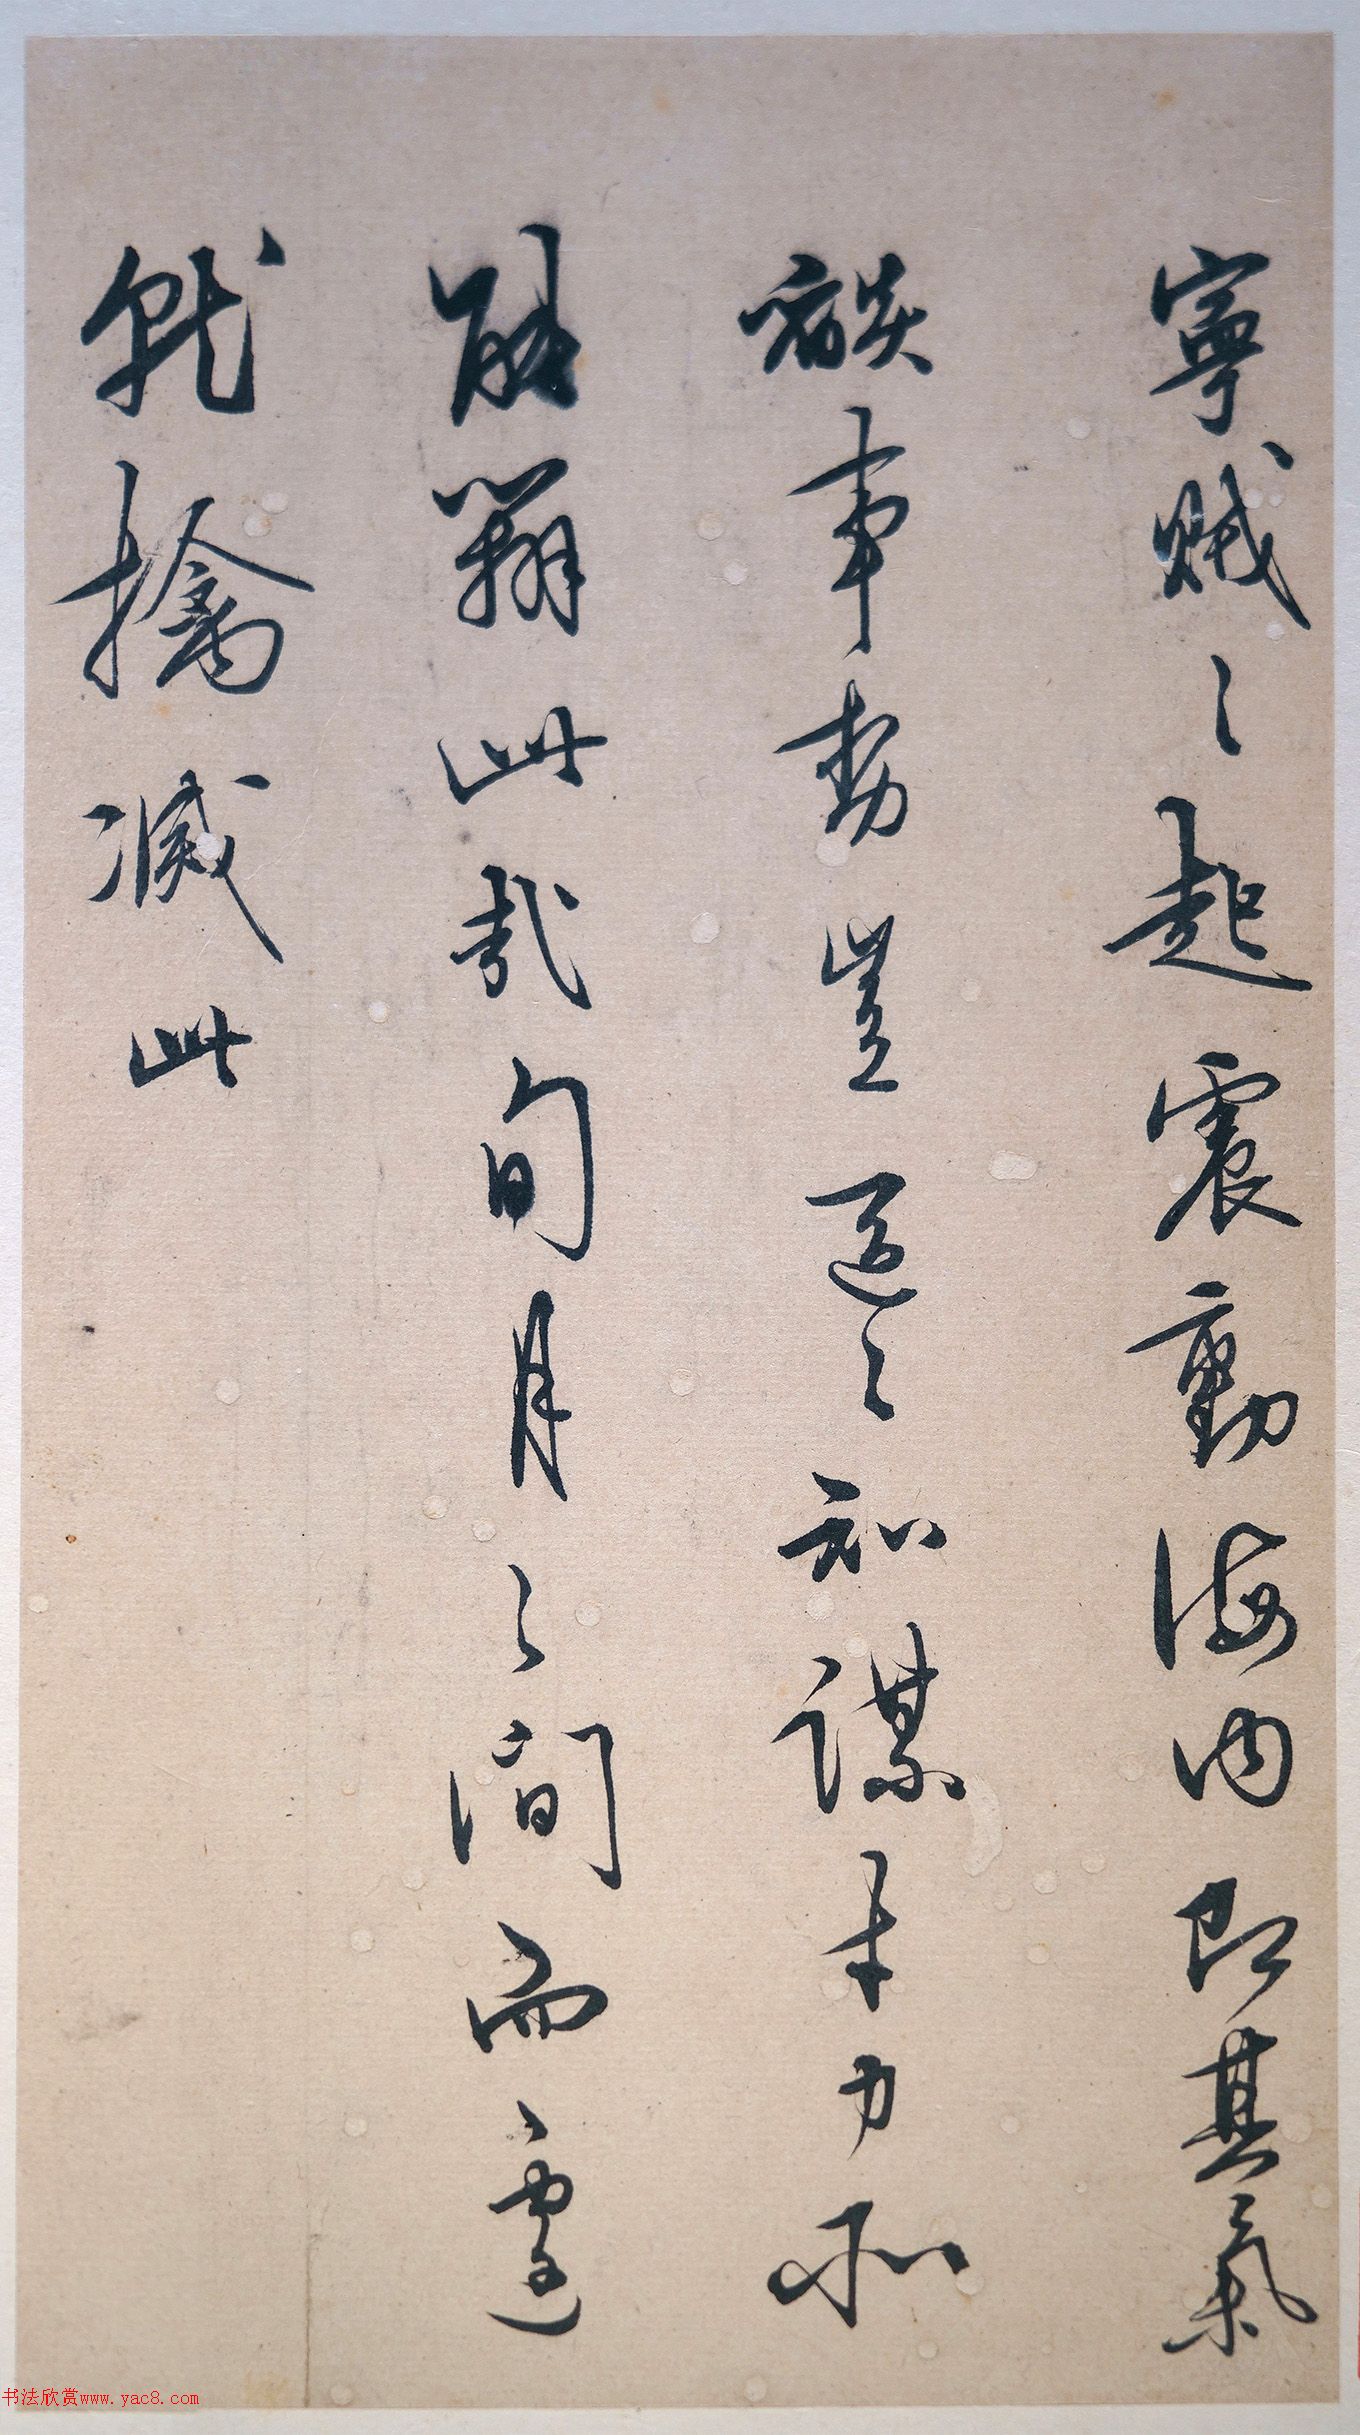 寧賊之起震動海内即其氣
燄事勢豈區々知謀才力所
能翦此哉旬月之間而遽
就擒滅此
书法欣赏www.yac8.com